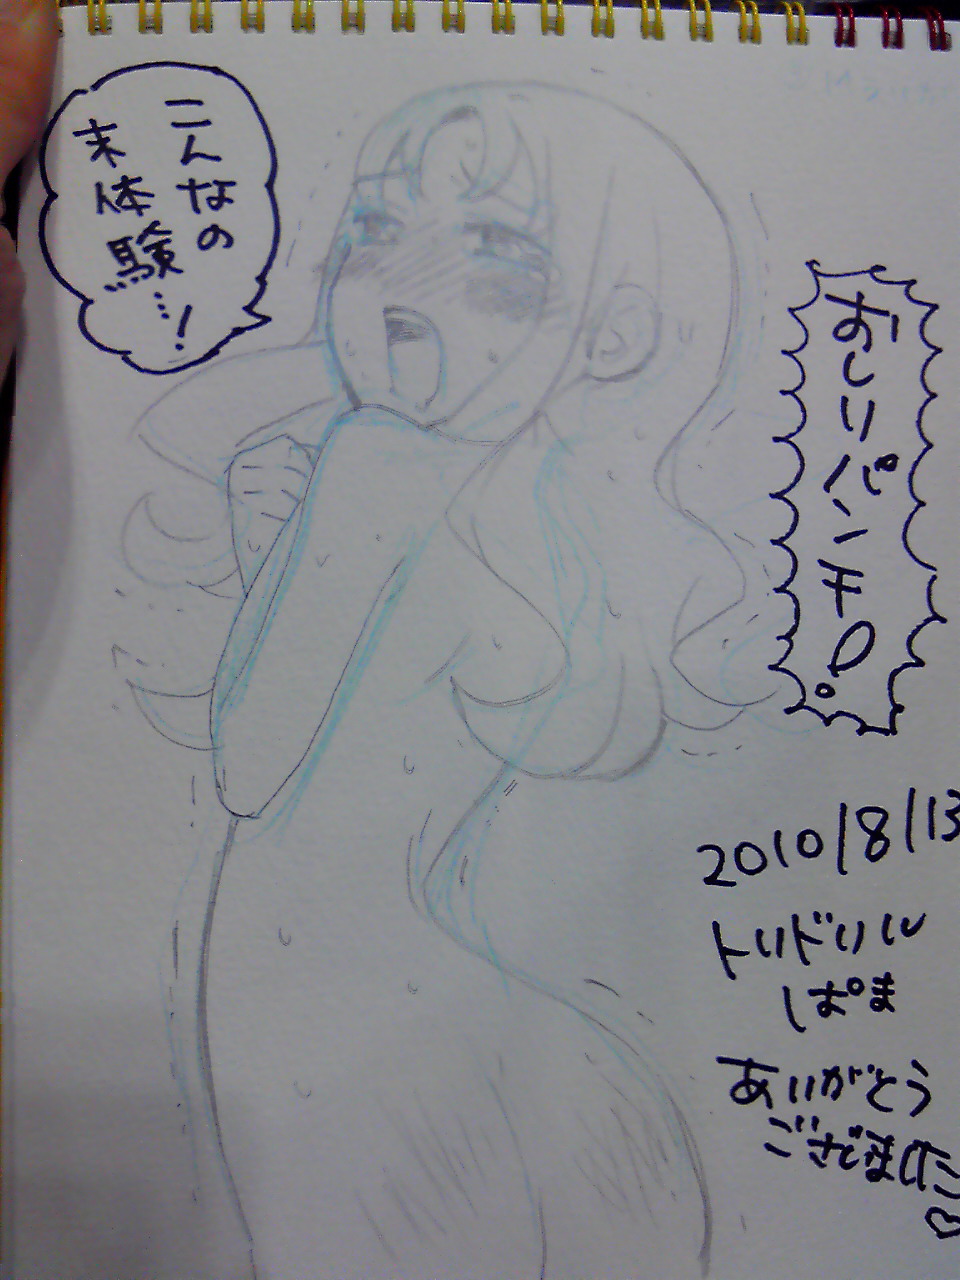 こんなの
未体験…!
おしりパンチ!!
2010/8/13
トリドリル
しぱま
ありがとう
ございました♡